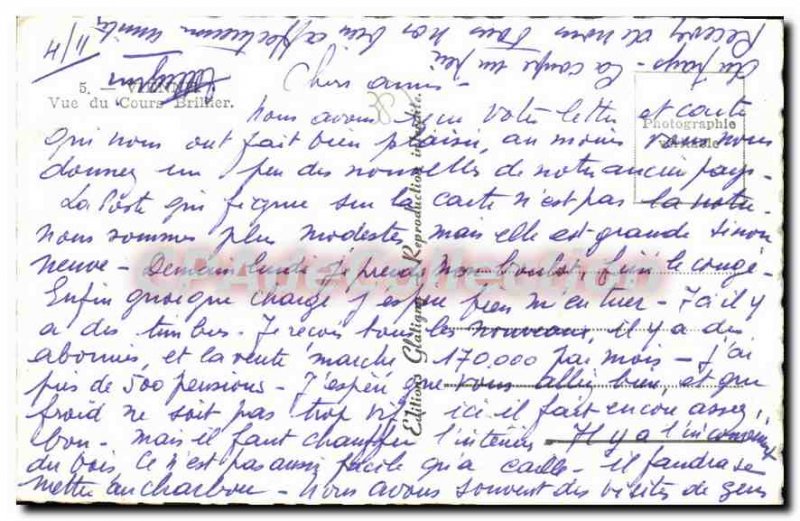 Chers amis -
Nous avons reçu votre lettre et carte
qui nous ont fait bien plaisir, au moins vous nous
donnez un peu des nouvelles de notre ancien pays -
La Poste qui figure sur la carte n'est pas la notre -
nous sommes plus modestes, mais elle est grande sinon
neuve - Demain lundi je prends mon boulot, fini le congé -
Enfin quoique chargé j'espère bien m'en tirer - Ici il y
a des timbres - Je reçois tous les nouveaux, il y a des
abonnés, et la vente marche 170.000 par mois - J'ai
près de 500 pensions - J'espère que vous allez bien, et que
froid ne soit pas trop vif, ici il fait encore assez
bon - mais il faut chauffer l'intérieur - Il y a l'inconvénient
du bois, ce n'est pas aussi facile qu'à - il faudra se
mettre au charbon - Nous avons souvent des visites de gens
du pays - La coupe un peu
Recevez de nous tous nos bien affectueuses amitiés
11/4
5. —
Vue du Cours Brillier.
Photographie
Editions Glatigny - Reproduction interdite.
CPArteCollection